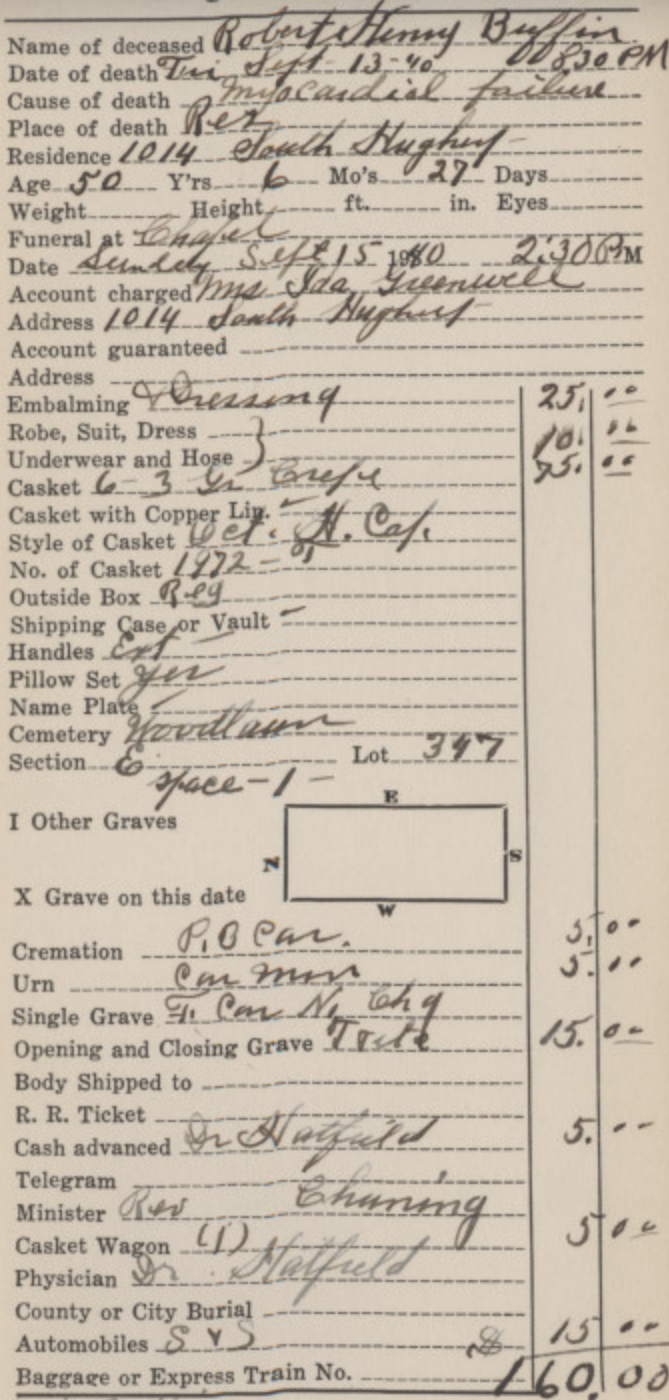 Name of deceased Robert Henry Buffin
Date of death Fri Sept-13-40 830 PM
Cause of death myocardial failure
Place of death Res
Residence 1014 South Hughes
Age 50 Y'rs 6 Mo's 27 Days
Weight Height ft. in. Eyes
Funeral at Chapel
Date Sunday Sept 15 1940 2:30 PM
Account charged Mrs Ida Greenwell
Address 1014 South Hughes
Account guaranteed
Address
Embalming & Dressing 25.00
Robe, Suit, Dress } 10.00
Underwear and Hose 75.00
Casket 6-3 Gr Crepe
Casket with Copper Lin. -
Style of Casket Oct. H. Cap.
No. of Casket 1972 -
Outside Box Reg
Shipping Case or Vault -
Handles Ext -
Pillow Set yes
Name Plate -
Cemetery Woodlawn
Section E Lot 347
space-1-
E
I Other Graves
N S
X Grave on this date
W
Cremation P.B Car. 5.00
Urn Car 5.00
Single Grave F. Car N. Chg
Opening and Closing Grave 15.00
Body Shipped to
R. R. Ticket
Cash advanced Dr Hatfield 5.00
Telegram
Minister Rev Chuning
Casket Wagon (1) 5 00
Physician Dr. Hatfield
County or City Burial
Automobiles S & S 15 00
Baggage or Express Train No. 160 00